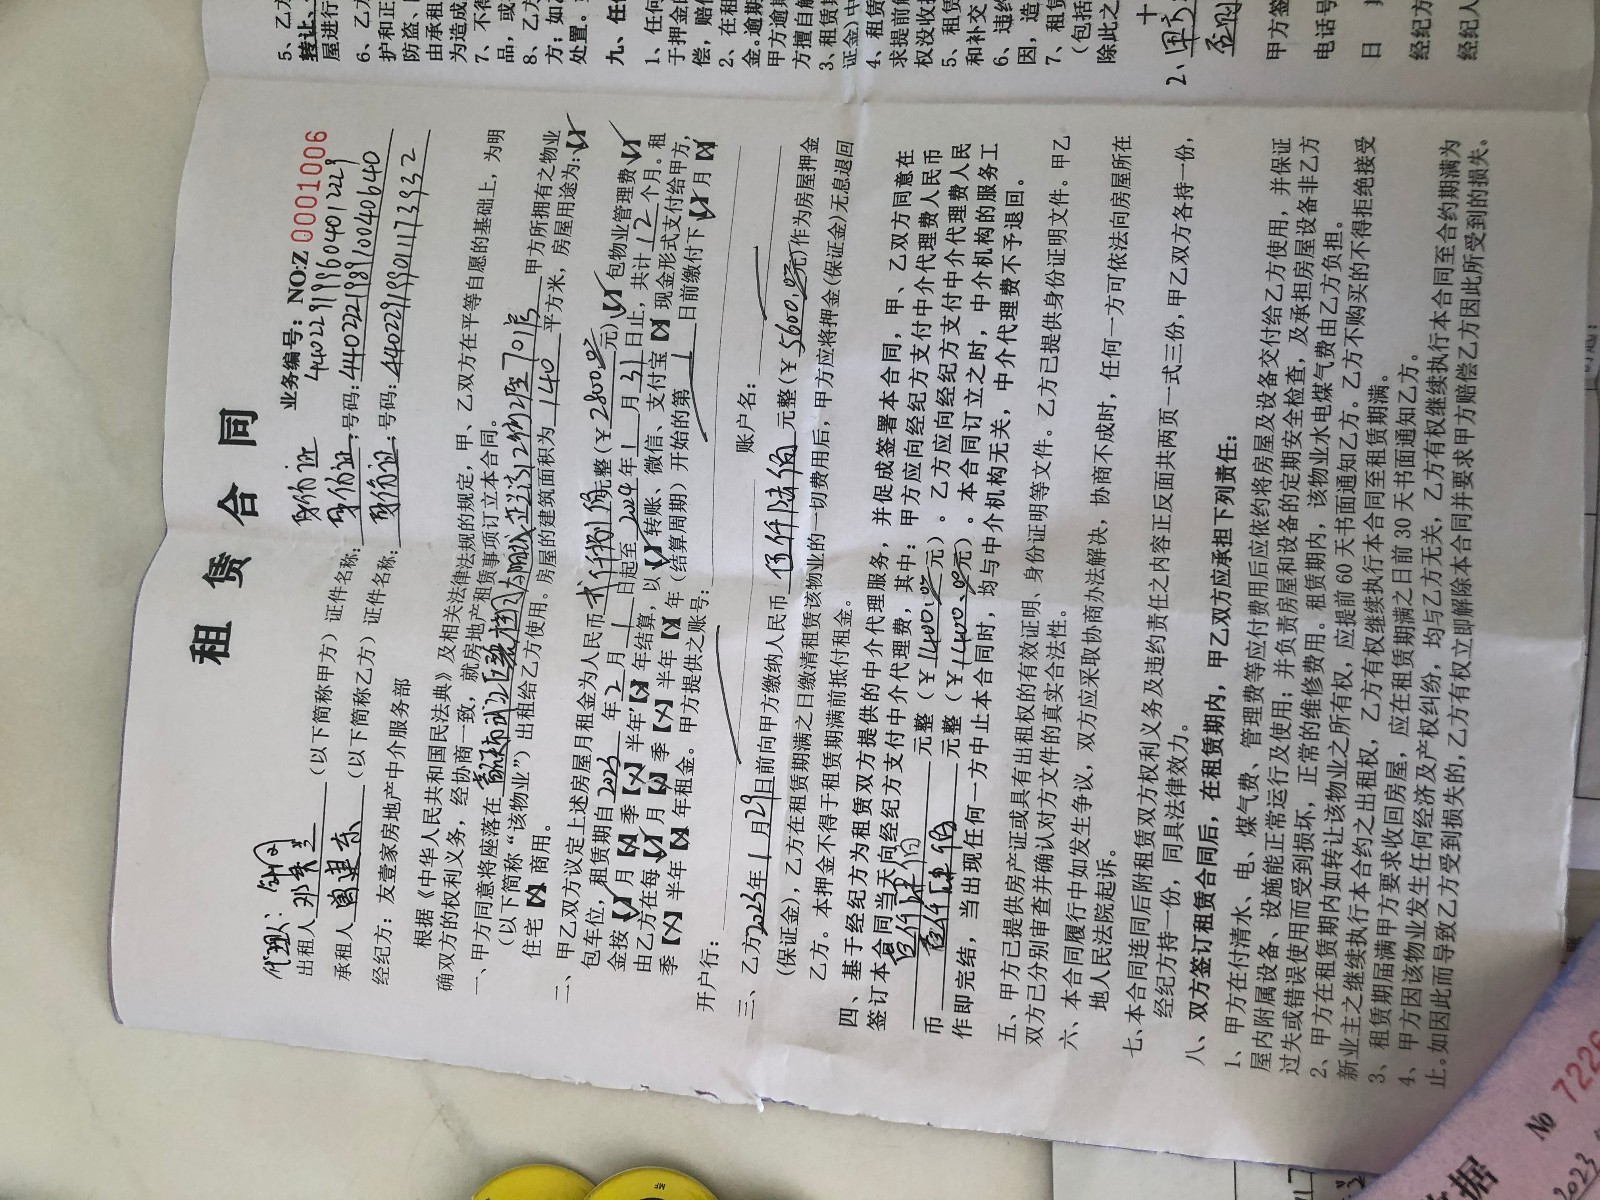 租赁合同
业务编号：NO:Z 0001006
代理人：
身份证 440229199604012229
出租人邓秉兰（以下简称甲方）证件名称：身份证；号码：440222198110040640
承租人（以下简称乙方）证件名称：身份证；号码：440229199011173932
经纪方：友壹家房地产中介服务部
根据《中华人民共和国民法典》及相关法律法规的规定，甲、乙双方在平等自愿的基础上，为明
确双方的权利义务，经协商一致，就房地产租赁事项订立本合同。
一、甲方同意将座落在 701房 甲方所拥有之物业
（以下简称“该物业”）出租给乙方使用。房屋的建筑面积为140平方米，房屋用途为：【√】
住宅【X】商用。
二、甲乙双方议定上述房屋月租金为人民币 元整（￥2800.00元）【√】包物业管理费【√】
包车位，租赁期自2023年2月1日起至2024年1月31日止，共计12个月。租
金按【√】月【X】季【X】半年【X】年结算，以【√】转账、微信、支付宝【X】现金形式支付给甲方，
由乙方在每【√】月【X】季【X】半年【X】年（结算周期）开始的第1日前缴付下【√】月【X】
季【X】半年【X】年租金。甲方提供之账号：
开户行： 账户名：
三、乙方2023年1月29日前向甲方缴纳人民币伍仟陆佰元整（￥5600.00元）作为房屋押金
（保证金），乙方在租赁期满之日缴清租赁该物业的一切费用后，甲方应将押金（保证金）无息退回
乙方。本押金不得于租赁期满前抵付租金。
四、基于经纪方为租赁双方提供的中介代理服务，并促成签署本合同，甲、乙双方同意在
签订本合同当天向经纪方支付中介代理费，其中：甲方应向经纪方支付中介代理费人民币
壹仟肆佰元整（￥1400.00元）。乙方应向经纪方支付中介代理费人民
币壹仟肆佰元整（￥1400.00元）。本合同订立之时，中介机构的服务工
作即完结，当出现任何一方中止本合同时，均与中介机构无关，中介代理费不予退回。
五、甲方已提供房产证或具有出租权的有效证明、身份证明等文件。乙方已提供身份证明文件。甲乙
双方已分别审查并确认对方文件的真实合法性。
六、本合同履行中如发生争议，双方应采取协商办法解决，协商不成时，任何一方可依法向房屋所在
地人民法院起诉。
七、本合同连同后附租赁双方权利义务及违约责任之内容正反面共两页一式三份，甲乙双方各持一份，
经纪方持一份，同具法律效力。
八、双方签订租赁合同后，在租赁期内，甲乙双方应承担下列责任：
1、甲方在付清水、电、煤气费、管理费等应付费用后应依约将房屋及设备交付给乙方使用，并保证
屋内附属设备、设施能正常运行及使用；并负责房屋和设备的定期安全检查，及承担房屋设备非乙方
过失或错误使用而受到损坏，正常的维修费用。租赁期内，该物业水电煤气费由乙方负担。
2、甲方在租赁期内如转让该物业之所有权，应提前60天书面通知乙方。乙方不购买的不得拒绝接受
新业主之继续执行本合约之出租权，乙方有权继续执行本合同至租赁期满。
3、租赁期届满甲方要求收回房屋，应在租赁期满之日前30天书面通知乙方。
4、甲方因该物业发生任何经济及产权纠纷，均与乙方无关，乙方有权继续执行本合同至合约期满为
止。如因此而导致乙方受到损失的，乙方有权立即解除本合同并要求甲方赔偿乙方因此所受到的损失。
5、乙方
转让、
屋进行
6、乙方
护和正
防盗、
由承租
为造成
7、不得
品，或
8、乙方
方；如
处置。
九、任
1、任何
于押金的
偿，赔偿
2、在租
金。逾期
甲方逾期
方擅自解
3、租赁期
证金）中
4、租赁
求提前解
权没收押
5、租赁
和补交
6、违约
因，造
7、租赁
（包括
除此之
十
2、
甲方签
电话号
日
经纪方
经纪人
据
No 7226
2023